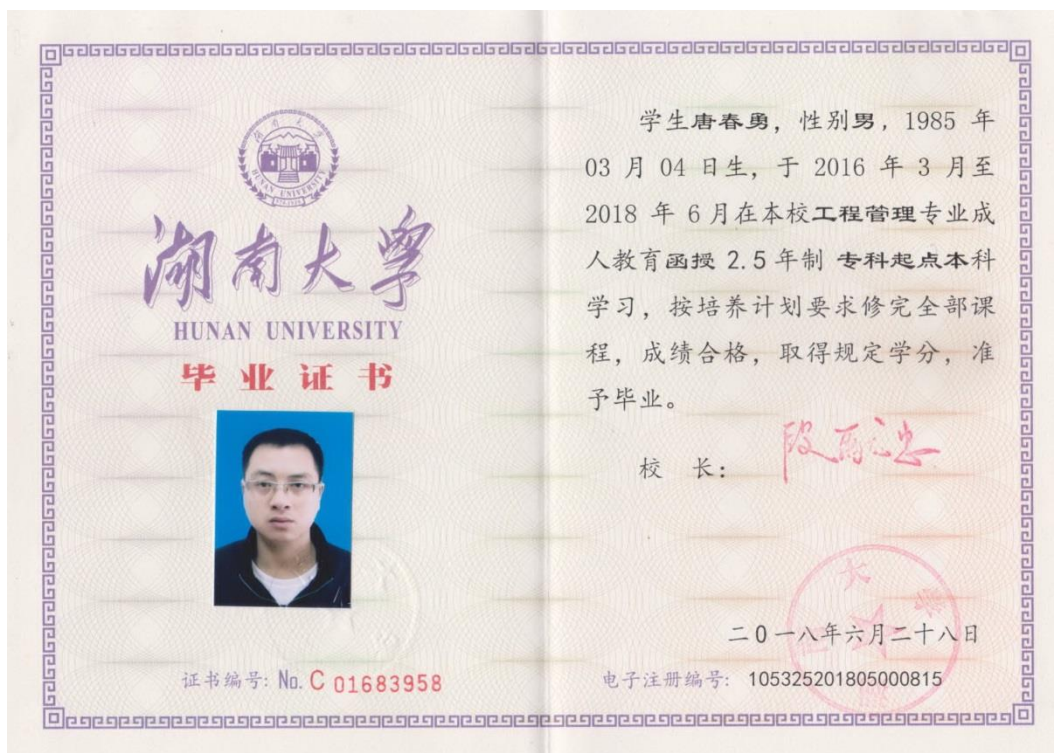 湖南大学
HUNAN UNIVERSITY
湖南大学
HUNAN UNIVERSITY
毕业证书
证书编号: No. C 01683958
学生唐春勇，性别男，1985 年
03 月 04 日生，于 2016 年 3 月至
2018 年 6 月在本校工程管理专业成
人教育函授 2.5 年制 专科起点本科
学习，按培养计划要求修完全部课
程，成绩合格，取得规定学分，准
予毕业。
校 长：
二0一八年六月二十八日
电子注册编号: 105325201805000815